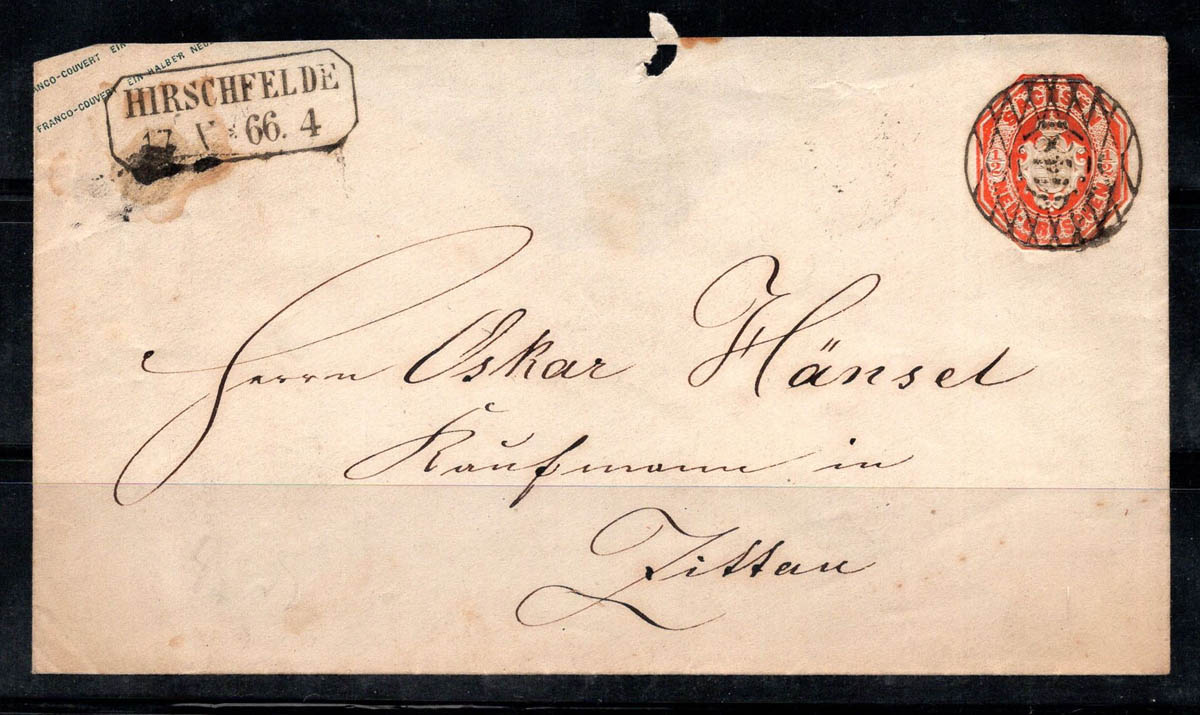 FRANCO-COUVERT EIN
FRANCO-COUVERT EIN HALBER NEU
HIRSCHFELDE
17 V 66. 4
½ ½
Herrn Oskar Hänsel
Kaufmann in
Zittau